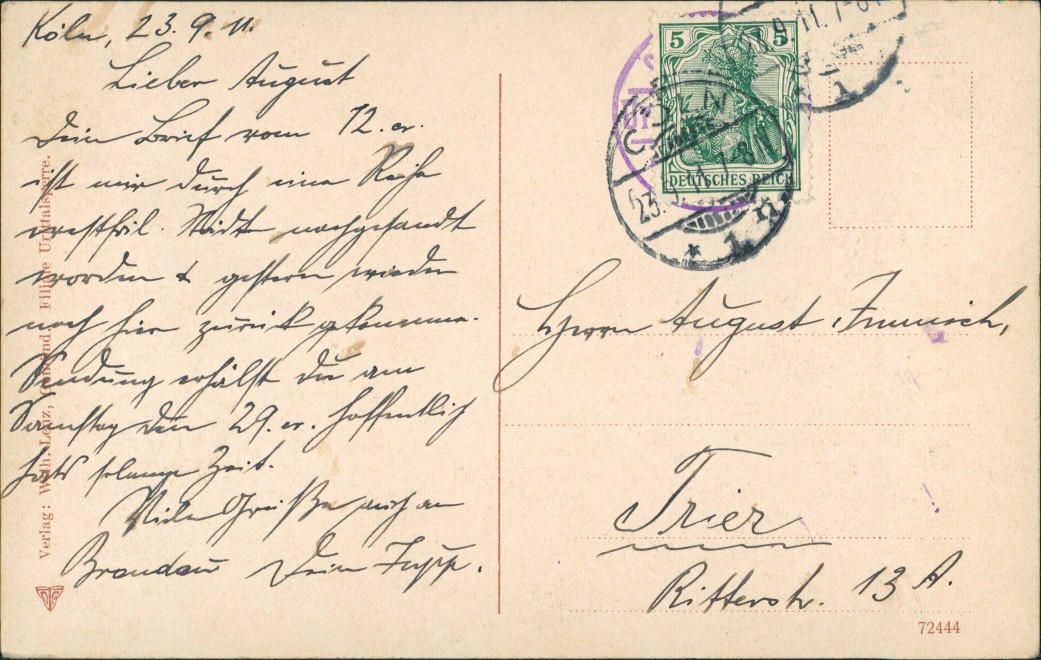 Köln, 23. 9. 11.
Lieber August
Dein Brief vom 12. cr.
ist mir durch eine Reihe
westfäl. Städte nachgesandt
worden & gestern wieder
nach hier zurück gekommen.
Sendung erhälst Du am
Samstag den 29. cr. hoffentlich
hats solange Zeit.
Viele Grüße auch an
Brandau Dein Jupp.
Verlag: Wilh. Lenz, Filiale Urfttalsperre.
5 5
DEUTSCHES REICH
CÖLN
23.9.11. 7-8 N
* 1 n
9.11. 7-8
1
Herrn August Immisch,
Trier
Ritterstr. 13 A.
72444